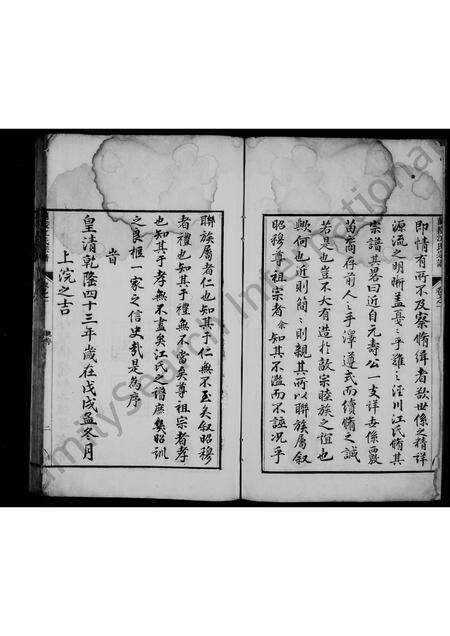 即情有所不及察脩緝者欲世係之精詳
源流之明晰蓋戛戛乎難之涇川江氏脩其
宗譜其畧曰近自元壽公一支詳攷係覈
苗裔存前人之手澤遵式而續脩之誠
若是也豈不大有造於敦宗睦族之誼也
歟何也近則簡簡則親其所以聯族屬叙
昭穆尊祖宗者余知其不濫而不誣况乎
聯族屬者仁也知其于仁無不至矣叙昭穆
者禮也知其于禮無不當矣尊祖宗者孝
也知其于孝無不盡矣江氏之譜庶幾昭訓
之良楷一家之信史哉是為序
旹
皇清乾隆四十三年歲在戊戌孟冬月
上浣之吉
MyHeritage International